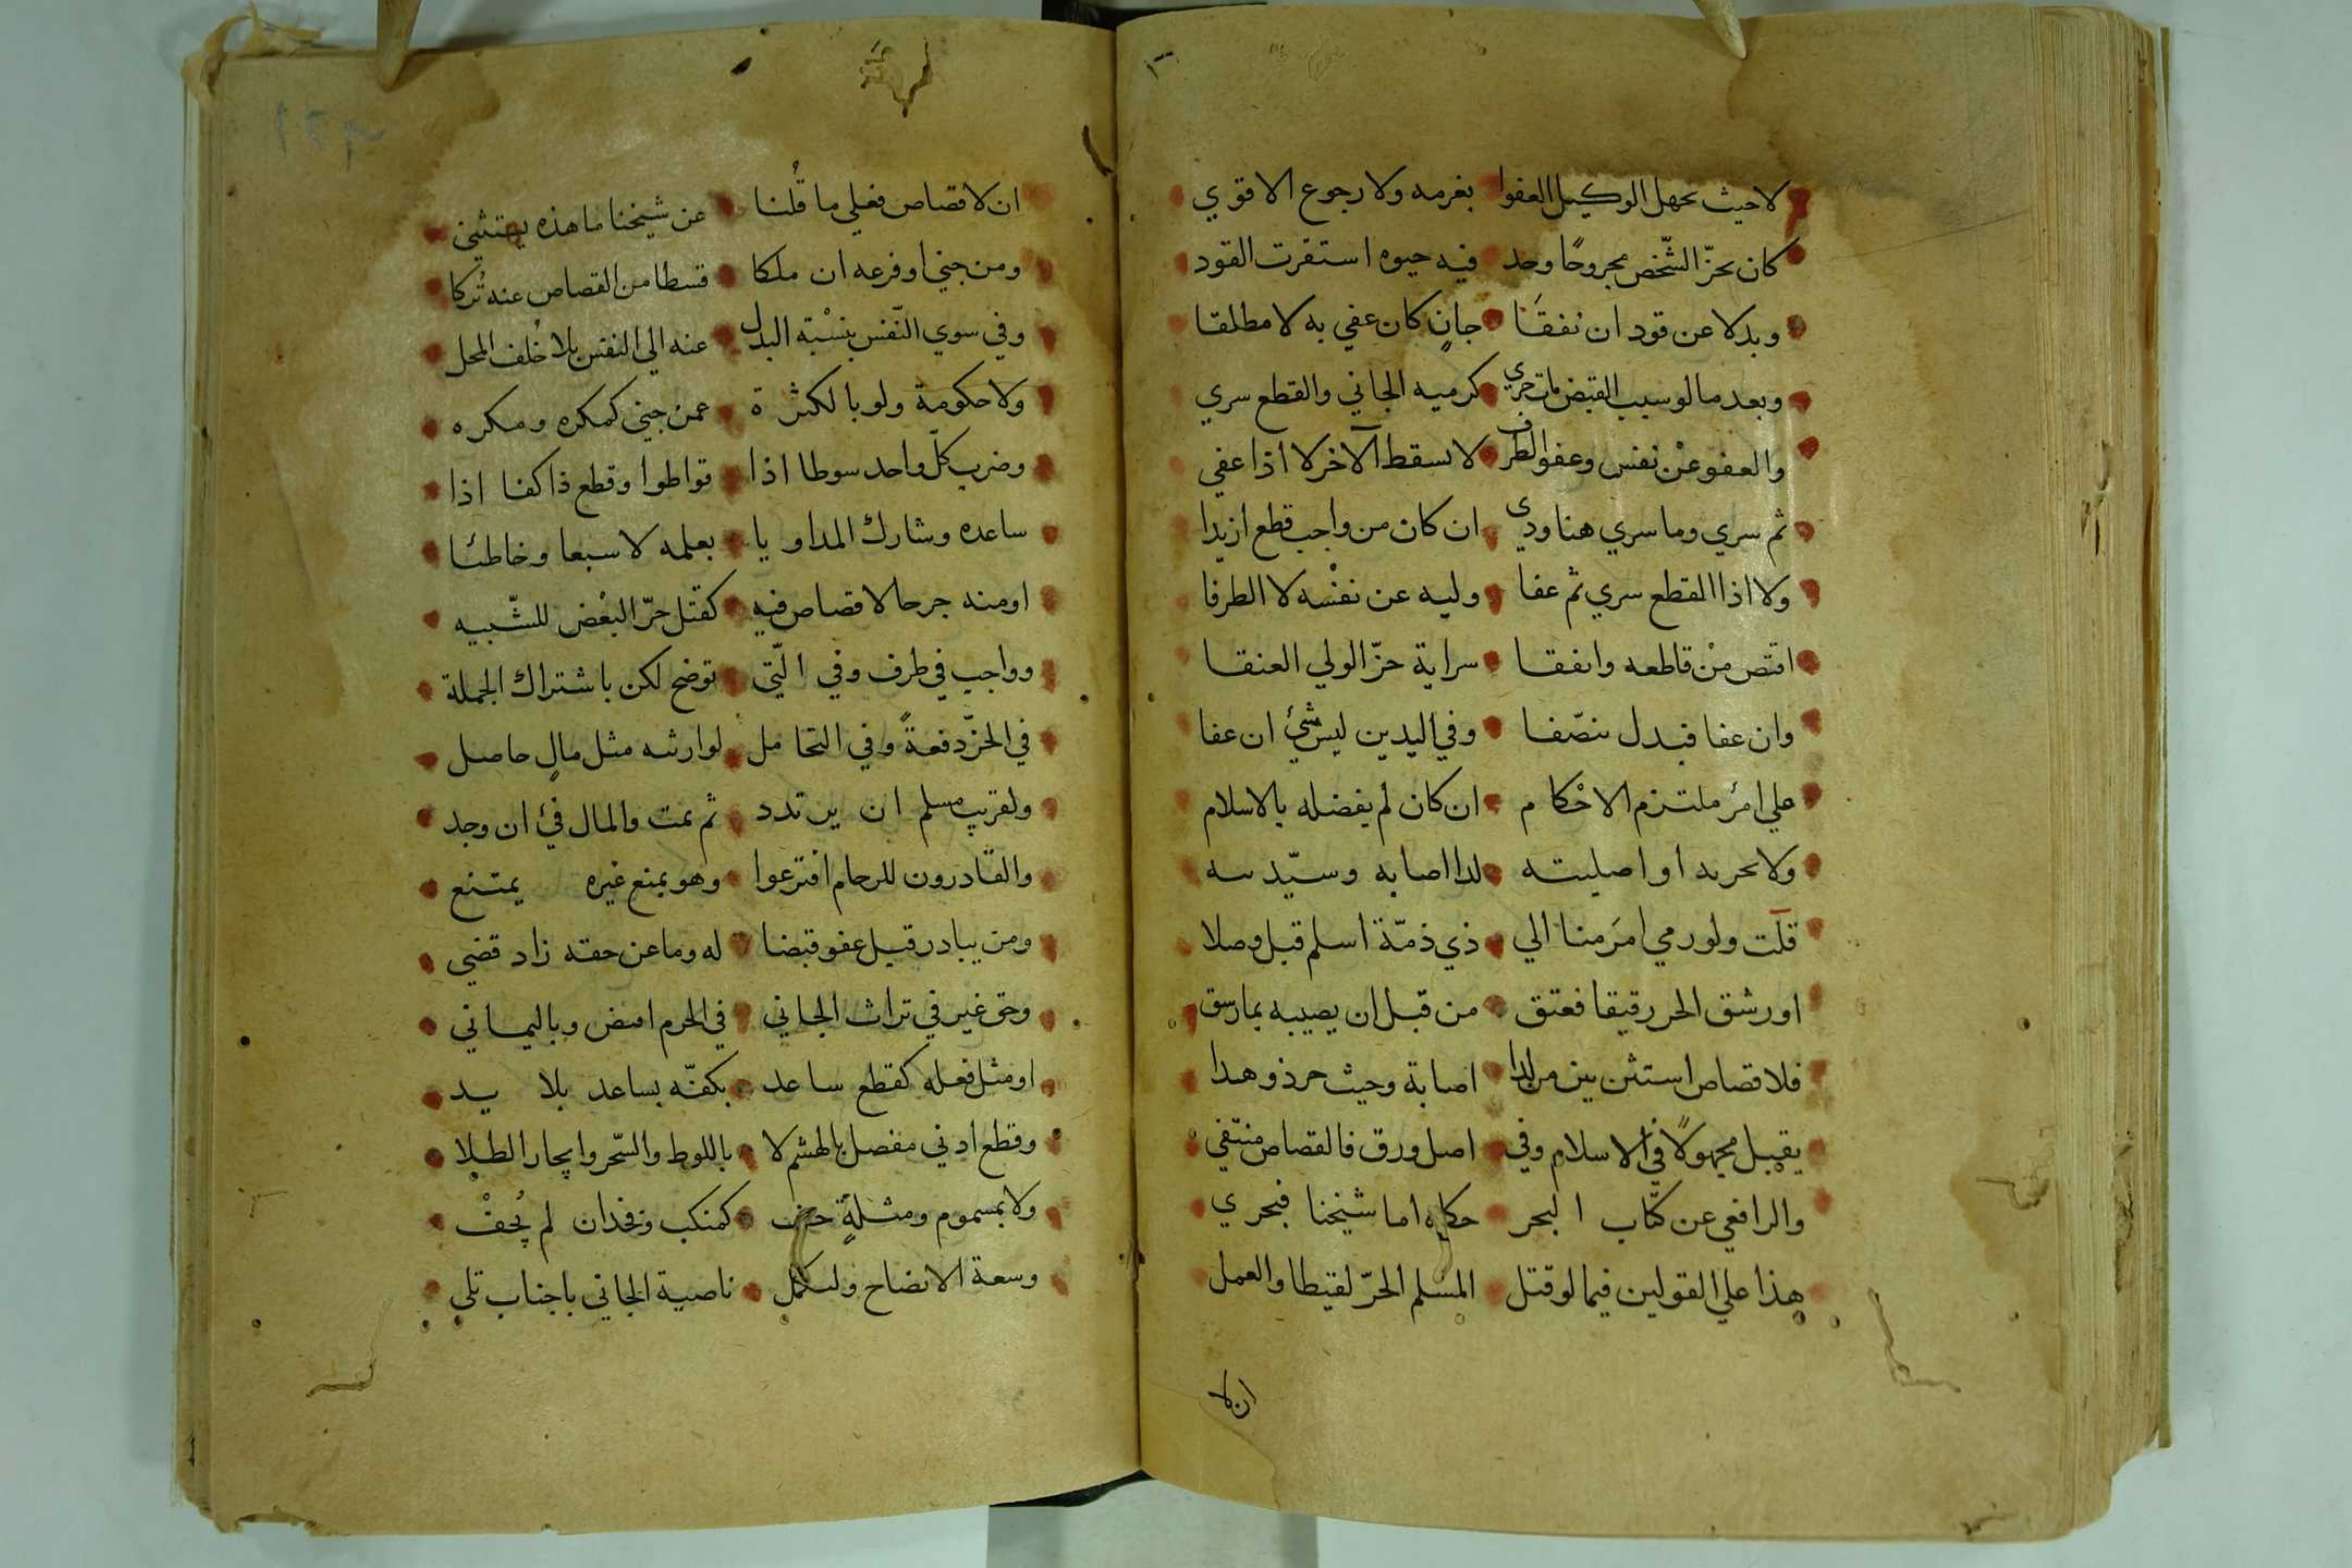 لا حيث يجهل الوكيل العفوا بغرمه ولا رجوع الاقوي
كان بحزّ الشّخص مجروحًا وجد فيه حيوه استقرت القود
وبدلا عن قود ان نفقَا جانٍ كان عفي به لا مطلقا
وبعد ما لو سبب القبض جري كرميه الجاني والقطع سري
والعفو عنْ نفس وعفو الطرف لا يسقط الآخر لا اذا عفي
ثم سري وما سري هنا ودي ان كان من واجب قطع ازيدا
ولا اذا القطع سري ثم عفا وليه عن نفْسه لا الطرفا
اقتص منْ قاطعه وانفقا سراية حزّ الولي العنقا
وان عفا فبدل ينصّفا وفي اليدين ليس شيئ ان عفا
علي امرُ ملتزم الاحْكام ان كان لم يفضله بالاسلام
ولا بحريه او اصليته لدا اصابه وسيّديته
قلت ولو رمي امرَ منا الي ذي ذمّة اسلم قبل وصلا
او رشق الحر رقيقا فعتق من قبل ان يصيبه بما رشق
فلا قصاص استثن بين من لدا اصابة وحيث حر ذو هدا
يقبل مجهولًا في الاسلام وفي اصل ورق فالقصاص منتفي
والرافعي عن كتاب البحر حكاه اما شيخنا فيجري
هذا علي القولين فيما لو قتل المسلم الحرّ لقيطا والعمل
ان لا
ان لا قصاص فعلي ما قُلنا عن شيخنا ما هذه يستثني
ومن جني او فرعه ان ملكا قسطا من القصاص عنه تُركا
وفي سوي النّفس بنسْبة البدل عنه الي النفس بلا خُلف المحل
ولا حكومة ولو بالكثرة عمن جني كمكره ومكره
وضرب كلّ واحد سوطا اذا تواطوا وقطع ذا كفا اذا
ساعده وشارك المداويا بعلمه لا سبعا وخاطئا
او منه جرحا لا قصاص فيه كقتل حرّ البعْض للشّبيه
وواجب في طرف وفي الّتي توضح لكن باشتراك الجملة
في الحزّ دفعةً وفي التحامل لوارثه مثل مالٍ حاصل
ولقريب مسلم ان يرتدد ثم يمت والمال فيئ ان وجد
والقادرون للرحام اقترعوا وهو بمنع غيره يمتنع
ومن يبادر قبل عفو قبضا له وما عن حقه زاد قضي
وحق غير في تراث الجاني في الحرم امض وباليماني
او مثل فعله كقطع ساعد بكفّه بساعد بلا يد
وقطع ادني مفصل بالهشم لا باللوط والسّحر وايجار الطلا
ولا بمسموم ومثلةٍ كمنكب وفخدان لم يُجفْ
وسعة الايضاح وليكمل ناصية الجاني باجناب تلي